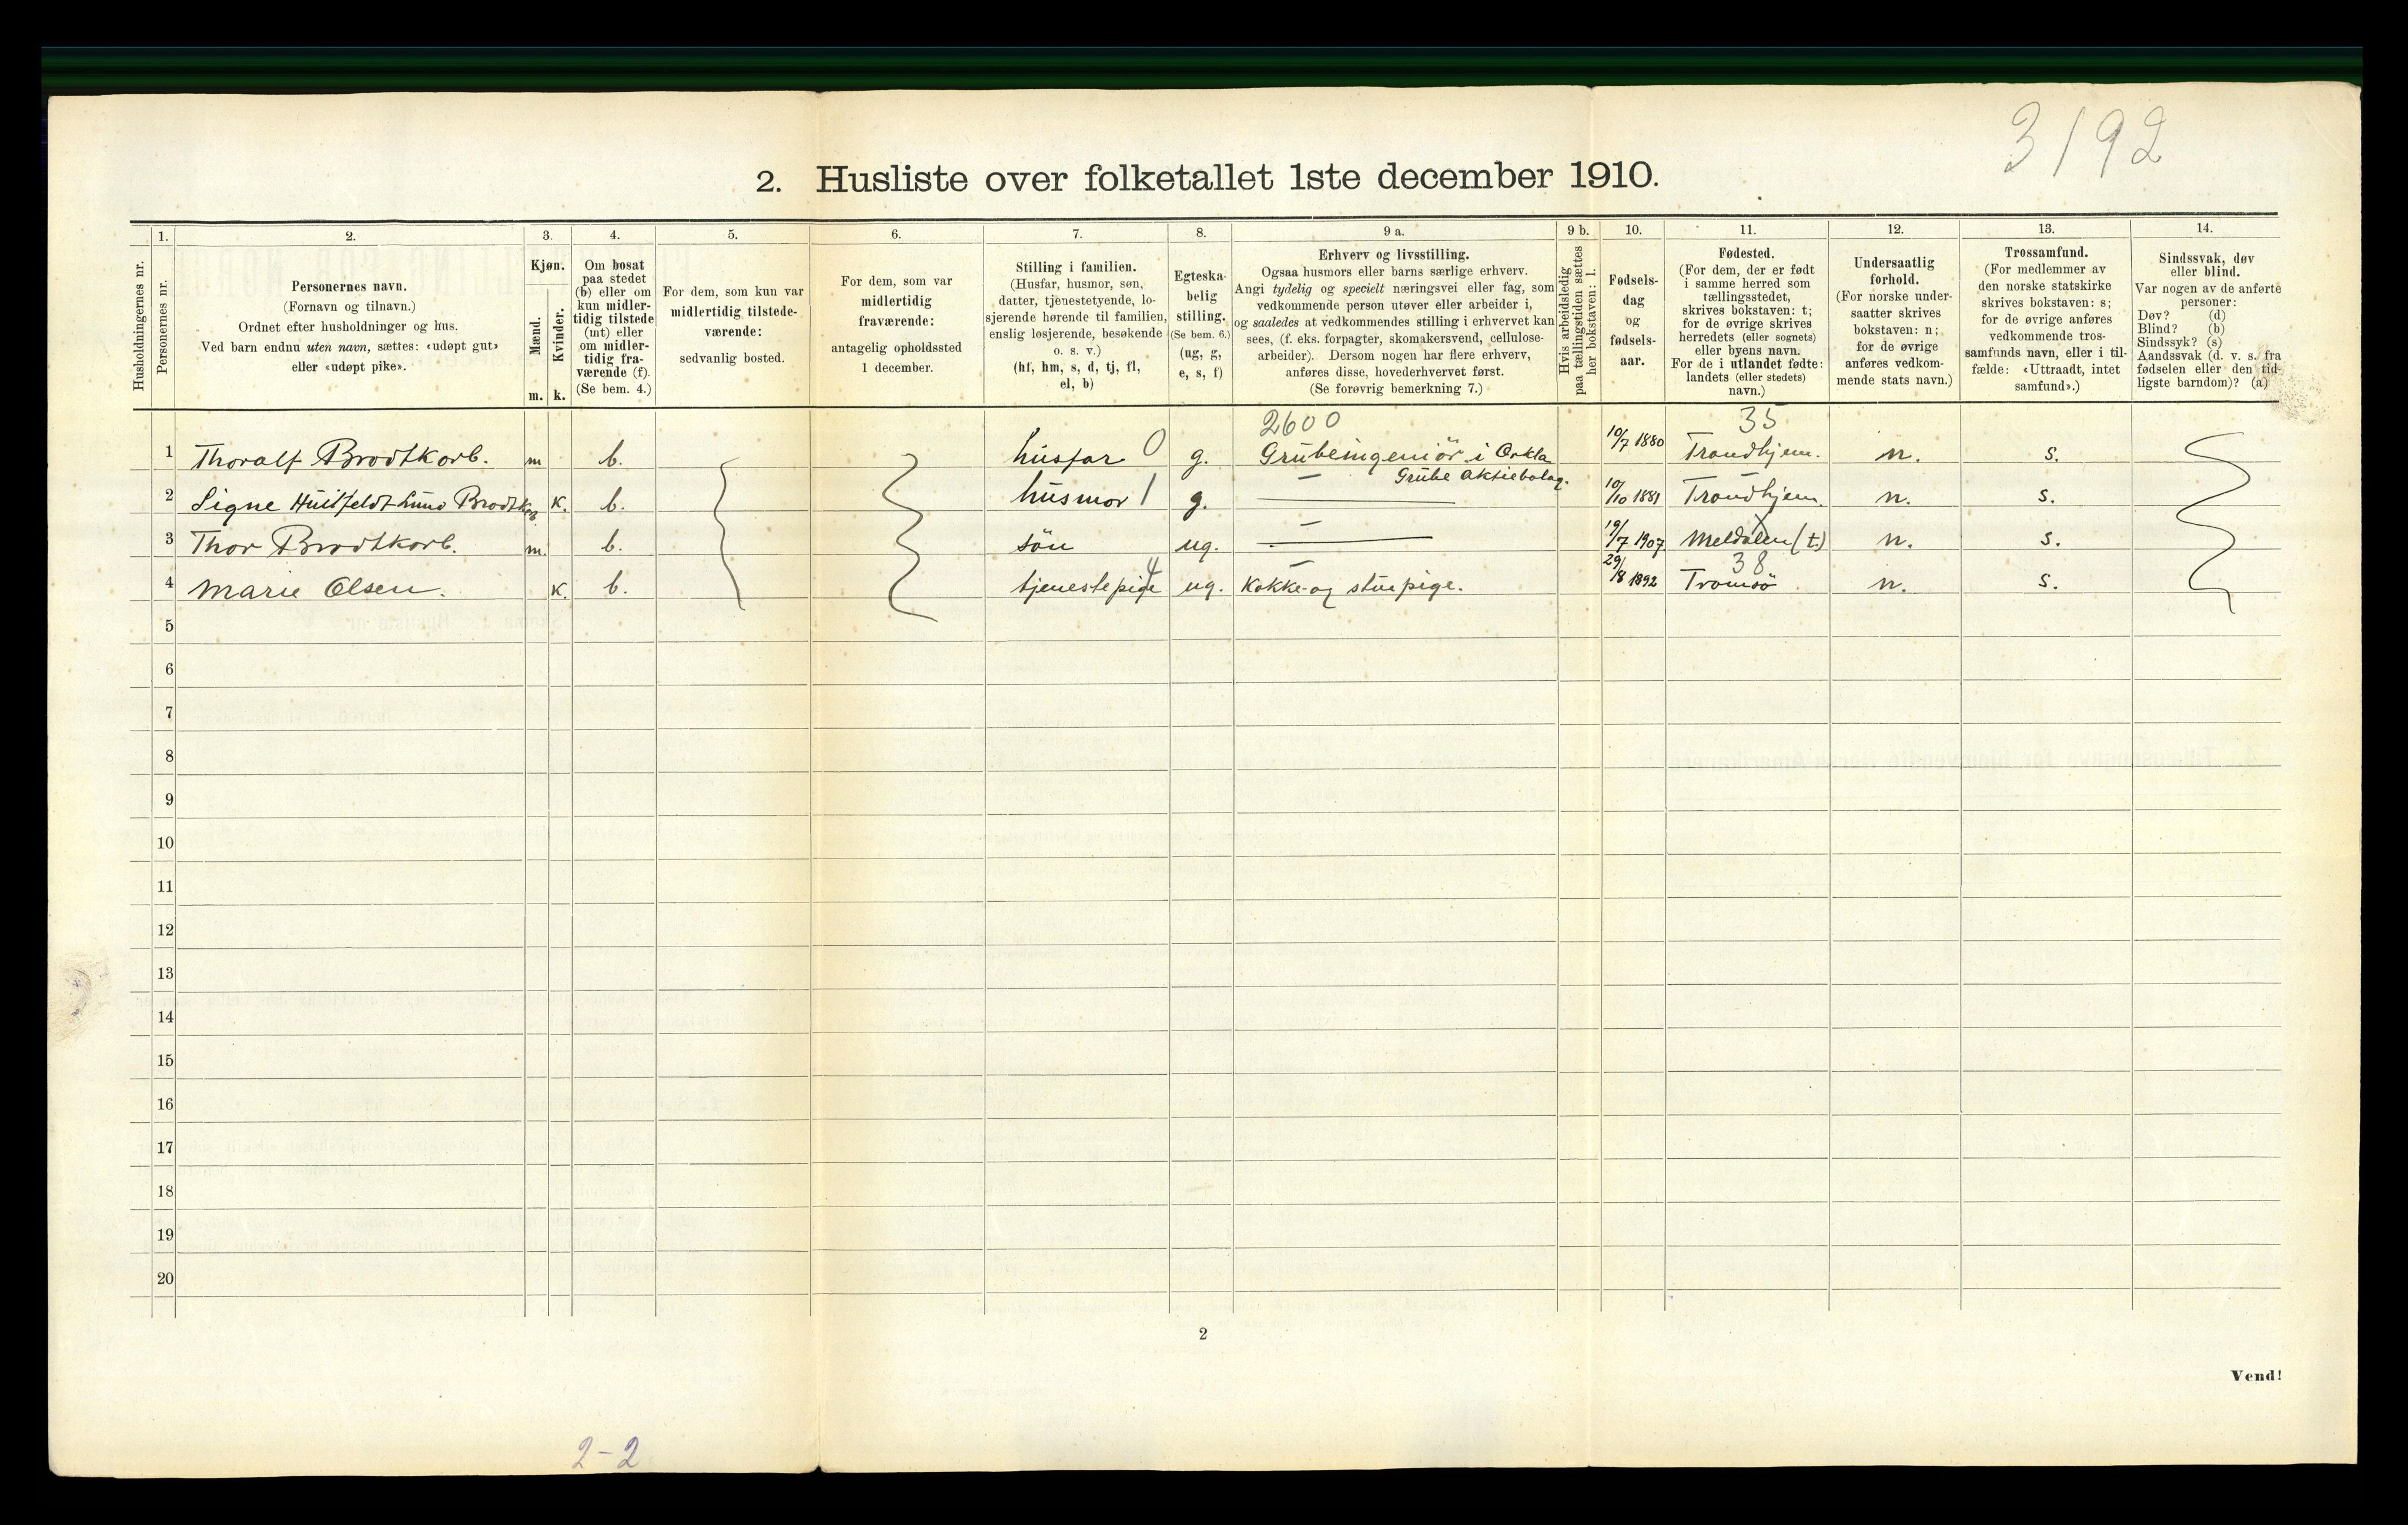 3192
2. Husliste over folketallet 1ste december 1910.
1. 2. 3. 4. 5. 6. 7. 8. 9 a. 9 b. 10. 11. 12. 13. 14.
Husholdningernes nr.
Personernes nr.
Personernes navn.
(Fornavn og tilnavn.)
Ordnet efter husholdninger og hus.
Ved barn endnu uten navn, sættes: «udøpt gut»
eller «udøpt pike».
Kjøn.
Mænd.
Kvinder.
m. k.
Om bosat
paa stedet
(b) eller om
kun midler-
tidig tilstede
(mt) eller
om midler-
tidig fra-
værende (f).
(Se bem. 4.)
For dem, som kun var
midlertidig tilstede-
værende:
sedvanlig bosted.
For dem, som var
midlertidig
fraværende:
antagelig opholdssted
1 december.
Stilling i familien.
(Husfar, husmor, søn,
datter, tjenestetyende, lo-
sjerende hørende til familien,
enslig losjerende, besøkende
o. s. v.)
(hf, hm, s, d, tj, fl,
el, b)
Egteska-
belig
stilling.
(Se bem. 6.)
(ug, g,
e, s, f)
Erhverv og livsstilling.
Ogsaa husmors eller barns særlige erhverv.
Angi tydelig og specielt næringsvei eller fag, som
vedkommende person utøver eller arbeider i,
og saaledes at vedkommendes stilling i erhvervet kan
sees, (f. eks. forpagter, skomakersvend, cellulose-
arbeider). Dersom nogen har flere erhverv,
anføres disse, hovederhvervet først.
(Se forøvrig bemerkning 7.)
Hvis arbeidsledig
paa tællingstiden sættes
her bokstaven: l.
Fødsels-
dag
og
fødsels-
aar.
Fødested.
(For dem, der er født
i samme herred som
tællingsstedet,
skrives bokstaven: t;
for de øvrige skrives
herredets (eller sognets)
eller byens navn.
For de i utlandet fødte:
landets (eller stedets)
navn.)
Undersaatlig
forhold.
(For norske under-
saatter skrives
bokstaven: n;
for de øvrige
anføres vedkom-
mende stats navn.)
Trossamfund.
(For medlemmer av
den norske statskirke
skrives bokstaven: s;
for de øvrige anføres
vedkommende tros-
samfunds navn, eller i til-
fælde: «Uttraadt, intet
samfund».)
Sindssvak, døv
eller blind.
Var nogen av de anførte
personer:
Døv? (d)
Blind? (b)
Sindssyk? (s)
Aandssvak (d. v. s. fra
fødselen eller den tid-
ligste barndom)? (a)
2600 35
1 Thoralf Brodtkorb. m b. husfar 0 g. Grubeingeniör i Orkla 10/7 1880 Trondhjem. n. s.
Grube Aktiebolag.
2 Signe Huitfeldt Lund Brodtkorb. k. b. husmor 1 g. — 10/10 1881 Trondhjem. n. s.
3 Thor Brodtkorb. m. b. sön ug. — 19/7 1907 Meldalen (t.) n. s.
38
4 Marie Olsen. k. b. tjenestepige 4 ug. Kokke- og stuepige. 29/8 1892 Tromsö n. s.
5
6
7
8
9
10
11
12
13
14
15
16
17
18
19
20
2
Vend!
2-2